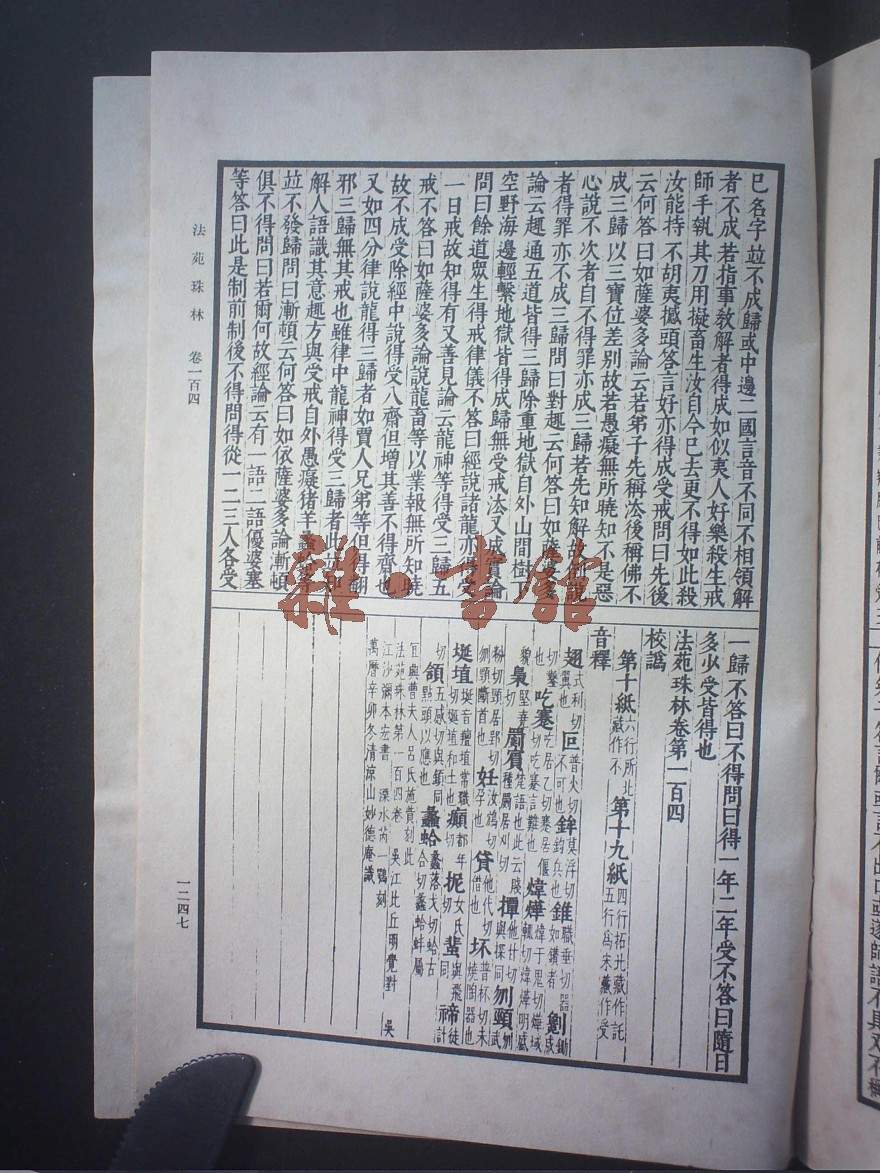 已名字竝不成歸或中邊二國言音不同不相領解
者不成若指事敎解者得成如似夷人好樂殺生戒
師手執其刀用擬畜生汝自今已去更不得如此殺
汝能持不胡夷撼頭答言好亦得成受戒問曰先後
云何答曰如薩婆多論云若弟子先稱法後稱佛不
成三歸以三寶位差別故若愚癡無所曉知不是惡
心說不次者自不得罪亦成三歸若先知解故倒說
者得罪亦不成三歸問曰對趣云何答曰如薩婆多
論云趣通五道皆得三歸除重地獄自外山間樹下
空野海邊輕繫地獄皆得成歸無受戒法又成實論
問曰餘道眾生得戒律儀不答曰經說諸龍亦得受
一日戒故知得有又善見論云龍神等得受三歸五
戒不答曰如薩婆多論說龍畜等以業報無所知曉
故不成受除經中說得受八齋但增其善不得齋也
又如四分律說龍得三歸者如賈人兄弟等但得翻
邪三歸無其戒也雖律中龍神得受三歸者此亦知
解人語識其意趣方與受戒自外愚癡猪羊蟲
竝不發歸問曰漸頓云何答曰如依薩婆多論漸頓
俱不得問曰若爾何故經論云有一語二語優婆塞
等答曰此是制前制後不得問得從一二三人各受
一歸不答曰不得問曰得一年二年受不答曰隨日
多少受皆得也
法苑珠林卷第一百四
校譌
第十紙六行所北藏作不 第十九紙四行拓北藏作託五行爲宋藏作受
音釋
翅式利切翼也 叵普火切不可也 鉾莫浮切鉤兵也 錐職垂切器如鑽者 劖鋤咸切鑿也
吃蹇吃居乙切蹇居偃切吃蹇言難也 煒燁煒于鬼切燁域輒切煒燁明盛貌
梟堅堯切 罽賓梵語也此云賤種罽居刈切 撢他甘切與探同 刎頸刎武粉切頸居郢切刎頸斷首也
妊汝鴆切孕也 貸他代切借也 坏普杯切未燒陶器也
埏埴埏音羶埴常職切埏埴和土也 癲都年切 抳女氏切 蜚與飛同 禘徒計切
頷五感切與顉同點頭以應也 蠡蛤蠡落戈切蛤古合切蠡蛤蚌屬
宜興曹夫人呂氏施貲刻此
法苑珠林第一百四卷 吳江比丘明覺對 吳
江沙彌本宏書 溧水芮一鶚刻
萬曆辛卯冬清涼山妙德庵識
法苑珠林 卷一百四
一二四七
雜·書館